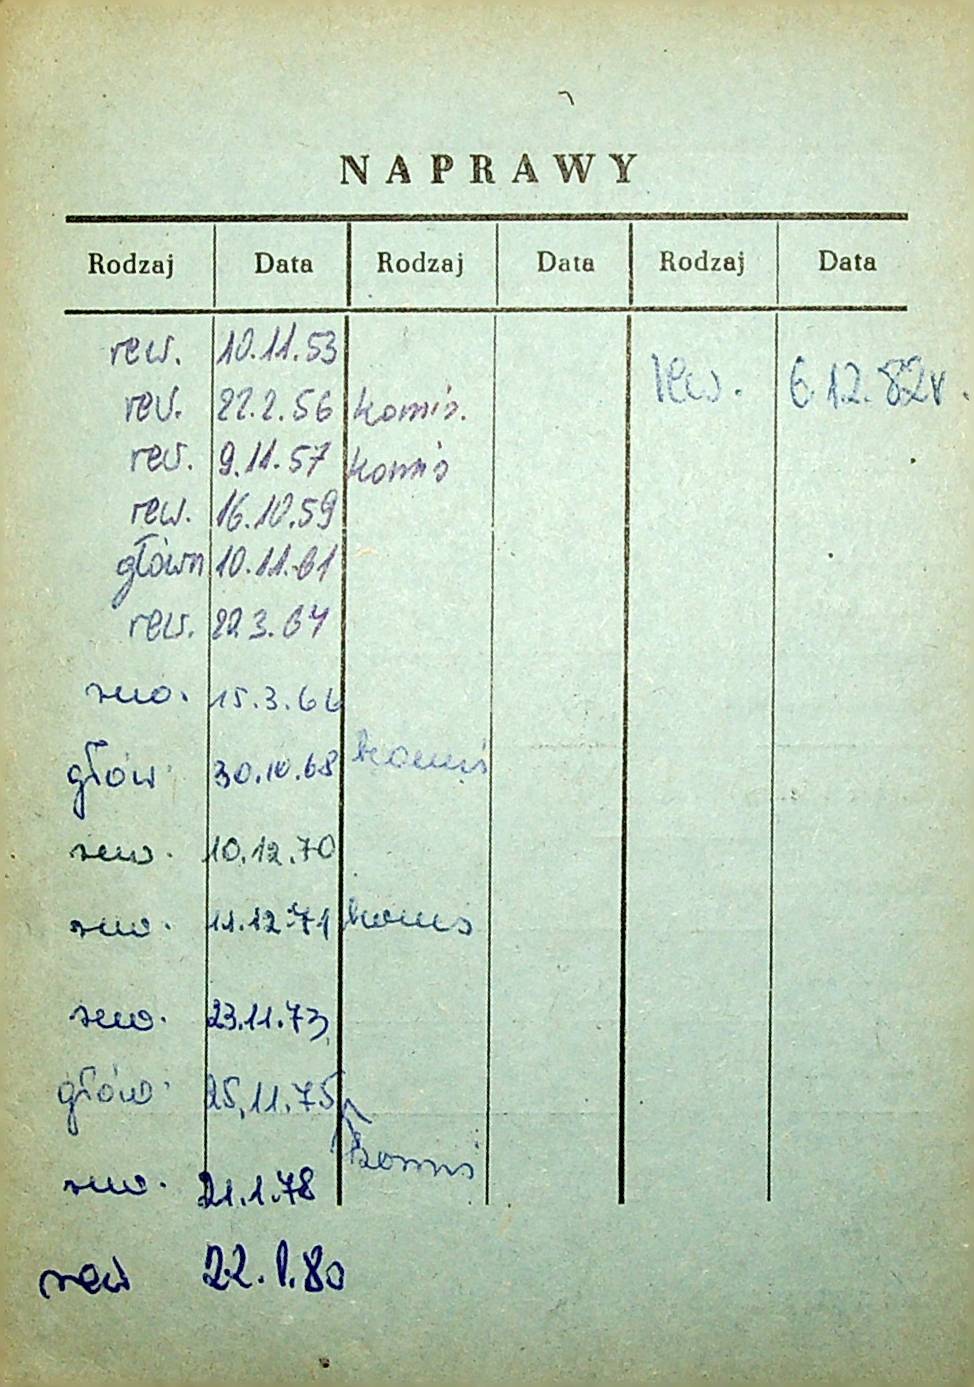 NAPRAWY
Rodzaj Data Rodzaj Data Rodzaj Data
rew. 10.11.53
rew. 22.2.56 komis. rew. 6.12.82r.
rew. 9.11.57 komis
rew. 16.10.59
główn 10.11.61
rew. 22.3.64
rew. 15.3.66
głów 30.10.68 komis
rew. 10.12.70
rew. 11.12.71 komis
rew. 23.11.73
głów 25.11.75
komis
rew. 21.1.78
rew 22.1.80